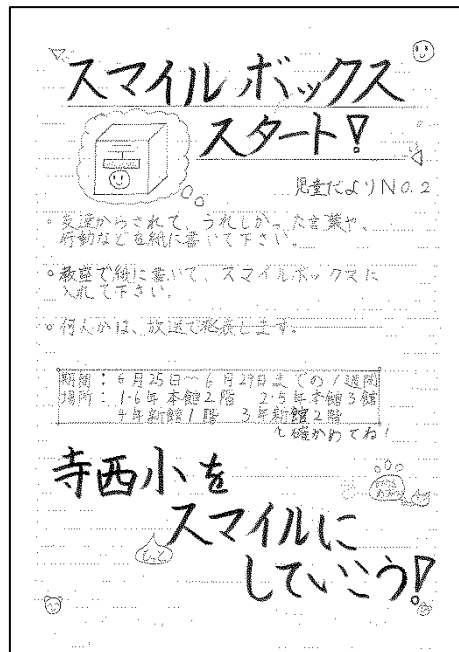 スマイルボックス
スタート!
児童だよりNO.2
○友達からされて、うれしかった言葉や、
行動などを紙に書いて下さい。
○教室で紙に書いて、スマイルボックスに
入れて下さい。
○何人かは、放送で発表します。
期間:6月25日〜6月29日までの1週間
場所:1・6年本館2階 2・5年本館3館
4年新館1階 3年新館2階
↳確かめてね!
寺西小を
もっと
スマイルに
していこう!